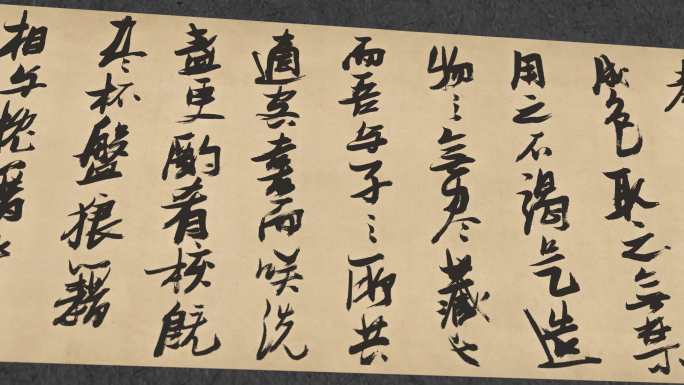 成色取之無禁
用之不竭是造
物之無盡藏也
而吾與子之所共
適客喜而咲洗
盞更酌肴核既
盡杯盤狼籍
相與枕籍